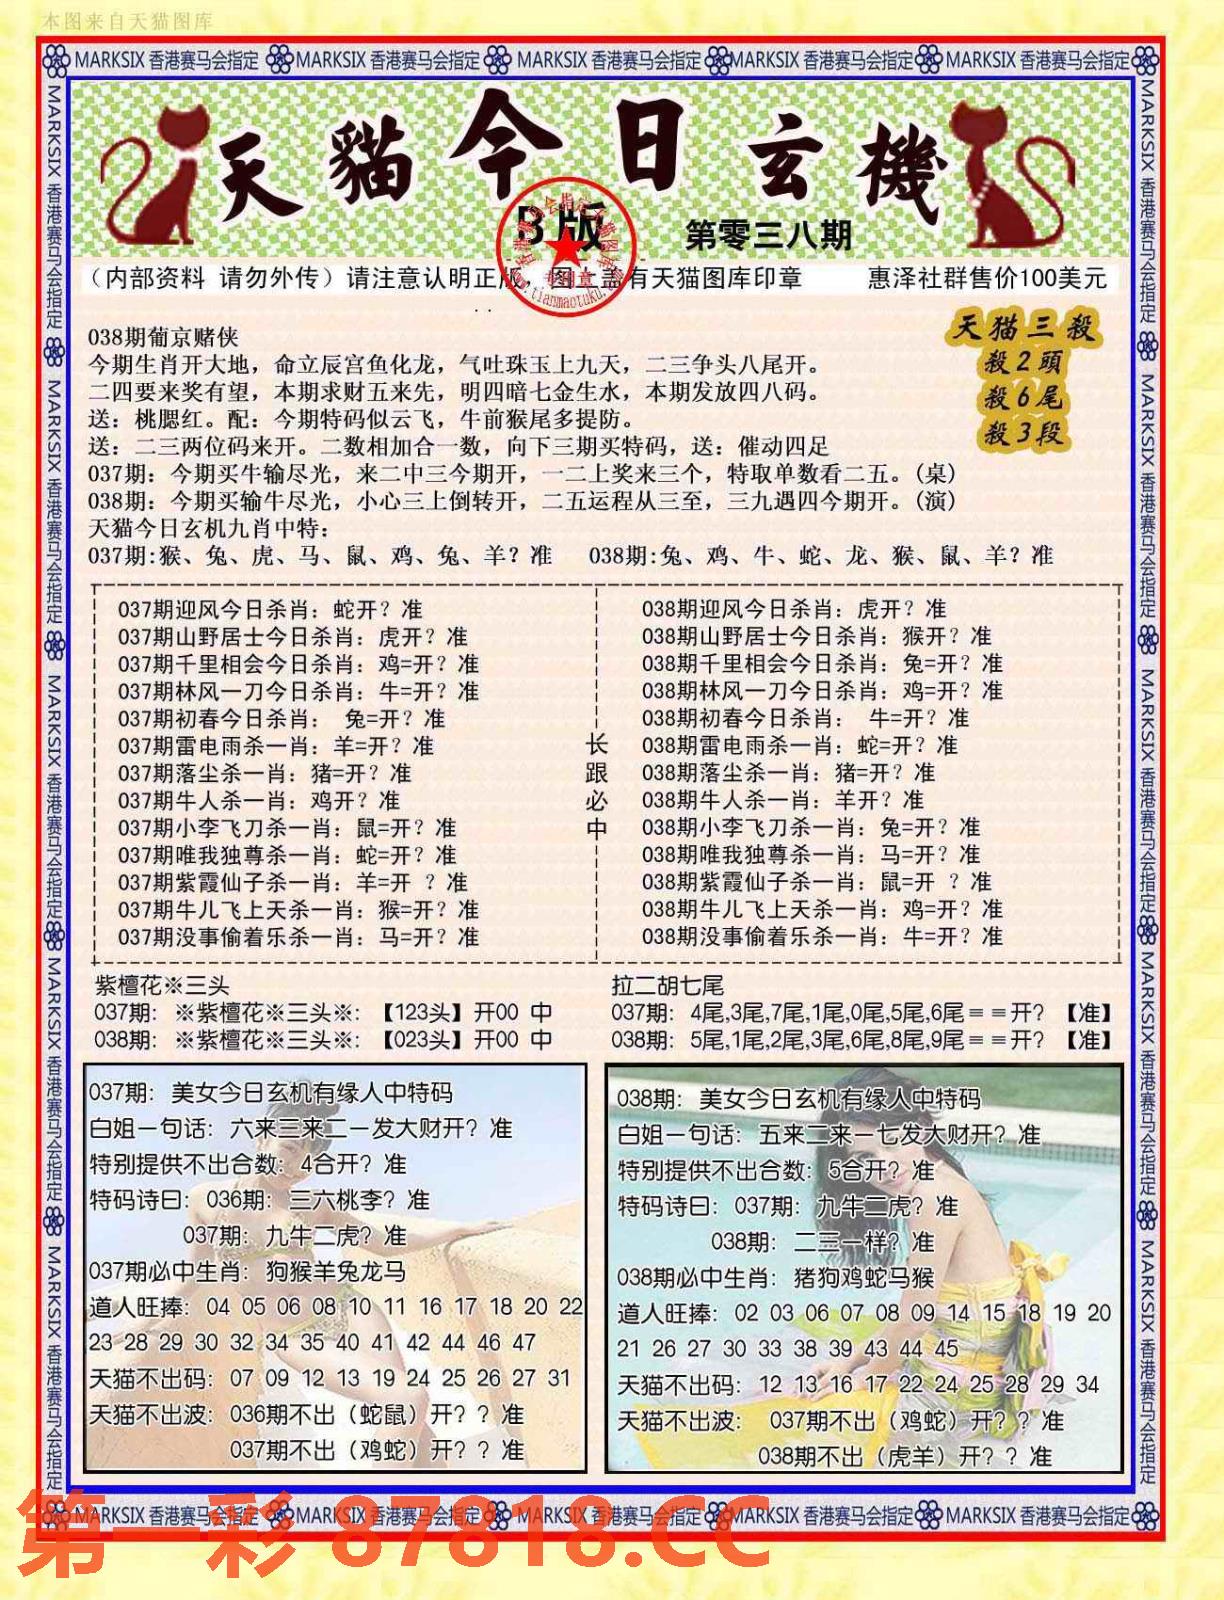 本图来自天猫图库
MARKSIX 香港赛马会指定 MARKSIX 香港赛马会指定 MARKSIX 香港赛马会指定 MARKSIX 香港赛马会指定 MARKSIX 香港赛马会指定
天貓今日玄機
B版
第零三八期
(内部资料 请勿外传)请注意认明正版 图上盖有天猫图库印章 惠泽社群售价100美元
专用章
www.tianmaotuku.
天猫三殺
殺2頭
殺6尾
殺3段
038期葡京赌侠
今期生肖开大地，命立辰宫鱼化龙，气吐珠玉上九天，二三争头八尾开。
二四要来奖有望，本期求财五来先，明四暗七金生水，本期发放四八码。
送：桃腮红。配：今期特码似云飞，牛前猴尾多提防。
送：二三两位码来开。二数相加合一数，向下三期买特码，送：催动四足
037期：今期买牛输尽光，来二中三今期开，一二上奖来三个，特取单数看二五。(桌)
038期：今期买输牛尽光，小心三上倒转开，二五运程从三至，三九遇四今期开。(演)
天猫今日玄机九肖中特：
037期:猴、兔、虎、马、鼠、鸡、兔、羊？准 038期:兔、鸡、牛、蛇、龙、猴、鼠、羊？准
037期迎风今日杀肖：蛇开？准
037期山野居士今日杀肖：虎开？准
037期千里相会今日杀肖：鸡=开？准
037期林风一刀今日杀肖：牛=开？准
037期初春今日杀肖： 兔=开？准
037期雷电雨杀一肖：羊=开？准
037期落尘杀一肖：猪=开？准
037期牛人杀一肖：鸡开？准
037期小李飞刀杀一肖：鼠=开？准
037期唯我独尊杀一肖：蛇=开？准
037期紫霞仙子杀一肖：羊=开 ？准
037期牛儿飞上天杀一肖：猴=开？准
037期没事偷着乐杀一肖：马=开？准
长跟必中
038期迎风今日杀肖：虎开？准
038期山野居士今日杀肖：猴开？准
038期千里相会今日杀肖：兔=开？准
038期林风一刀今日杀肖：鸡=开？准
038期初春今日杀肖： 牛=开？准
038期雷电雨杀一肖：蛇=开？准
038期落尘杀一肖：猪=开？准
038期牛人杀一肖：羊开？准
038期小李飞刀杀一肖：兔=开？准
038期唯我独尊杀一肖：马=开？准
038期紫霞仙子杀一肖：鼠=开 ？准
038期牛儿飞上天杀一肖：鸡=开？准
038期没事偷着乐杀一肖：牛=开？准
紫檀花※三头
037期：※紫檀花※三头※：【123头】开00 中
038期：※紫檀花※三头※：【023头】开00 中
拉二胡七尾
037期：4尾,3尾,7尾,1尾,0尾,5尾,6尾＝＝开？【准】
038期：5尾,1尾,2尾,3尾,6尾,8尾,9尾＝＝开？【准】
037期：美女今日玄机有缘人中特码
白姐一句话：六来三来二一发大财开？准
特别提供不出合数：4合开？准
特码诗曰：036期：三六桃李？准
037期：九牛二虎？准
037期必中生肖：狗猴羊兔龙马
道人旺捧：04 05 06 08 10 11 16 17 18 20 22
23 28 29 30 32 34 35 40 41 42 44 46 47
天猫不出码：07 09 12 13 19 24 25 26 27 31
天猫不出波：036期不出（蛇鼠）开？？准
037期不出（鸡蛇）开？？准
038期：美女今日玄机有缘人中特码
白姐一句话：五来二来一七发大财开？准
特别提供不出合数：5合开？准
特码诗曰：037期：九牛二虎？准
038期：二三一样？准
038期必中生肖：猪狗鸡蛇马猴
道人旺捧：02 03 06 07 08 09 14 15 18 19 20
21 26 27 30 33 38 39 43 44 45
天猫不出码：12 13 16 17 22 24 25 28 29 34
天猫不出波： 037期不出（鸡蛇）开？？准
038期不出（虎羊）开？？准
MARKSIX 香港赛马会指定 MARKSIX 香港赛马会指定 MARKSIX 香港赛马会指定 MARKSIX 香港赛马会指定 MARKSIX 香港赛马会指定
MARKSIX 香港赛马会指定 MARKSIX 香港赛马会指定 MARKSIX 香港赛马会指定 MARKSIX 香港赛马会指定 MARKSIX 香港赛马会指定
MARKSIX 香港赛马会指定 MARKSIX 香港赛马会指定 MARKSIX 香港赛马会指定 MARKSIX 香港赛马会指定 MARKSIX 香港赛马会指定
第一彩 87818.CC